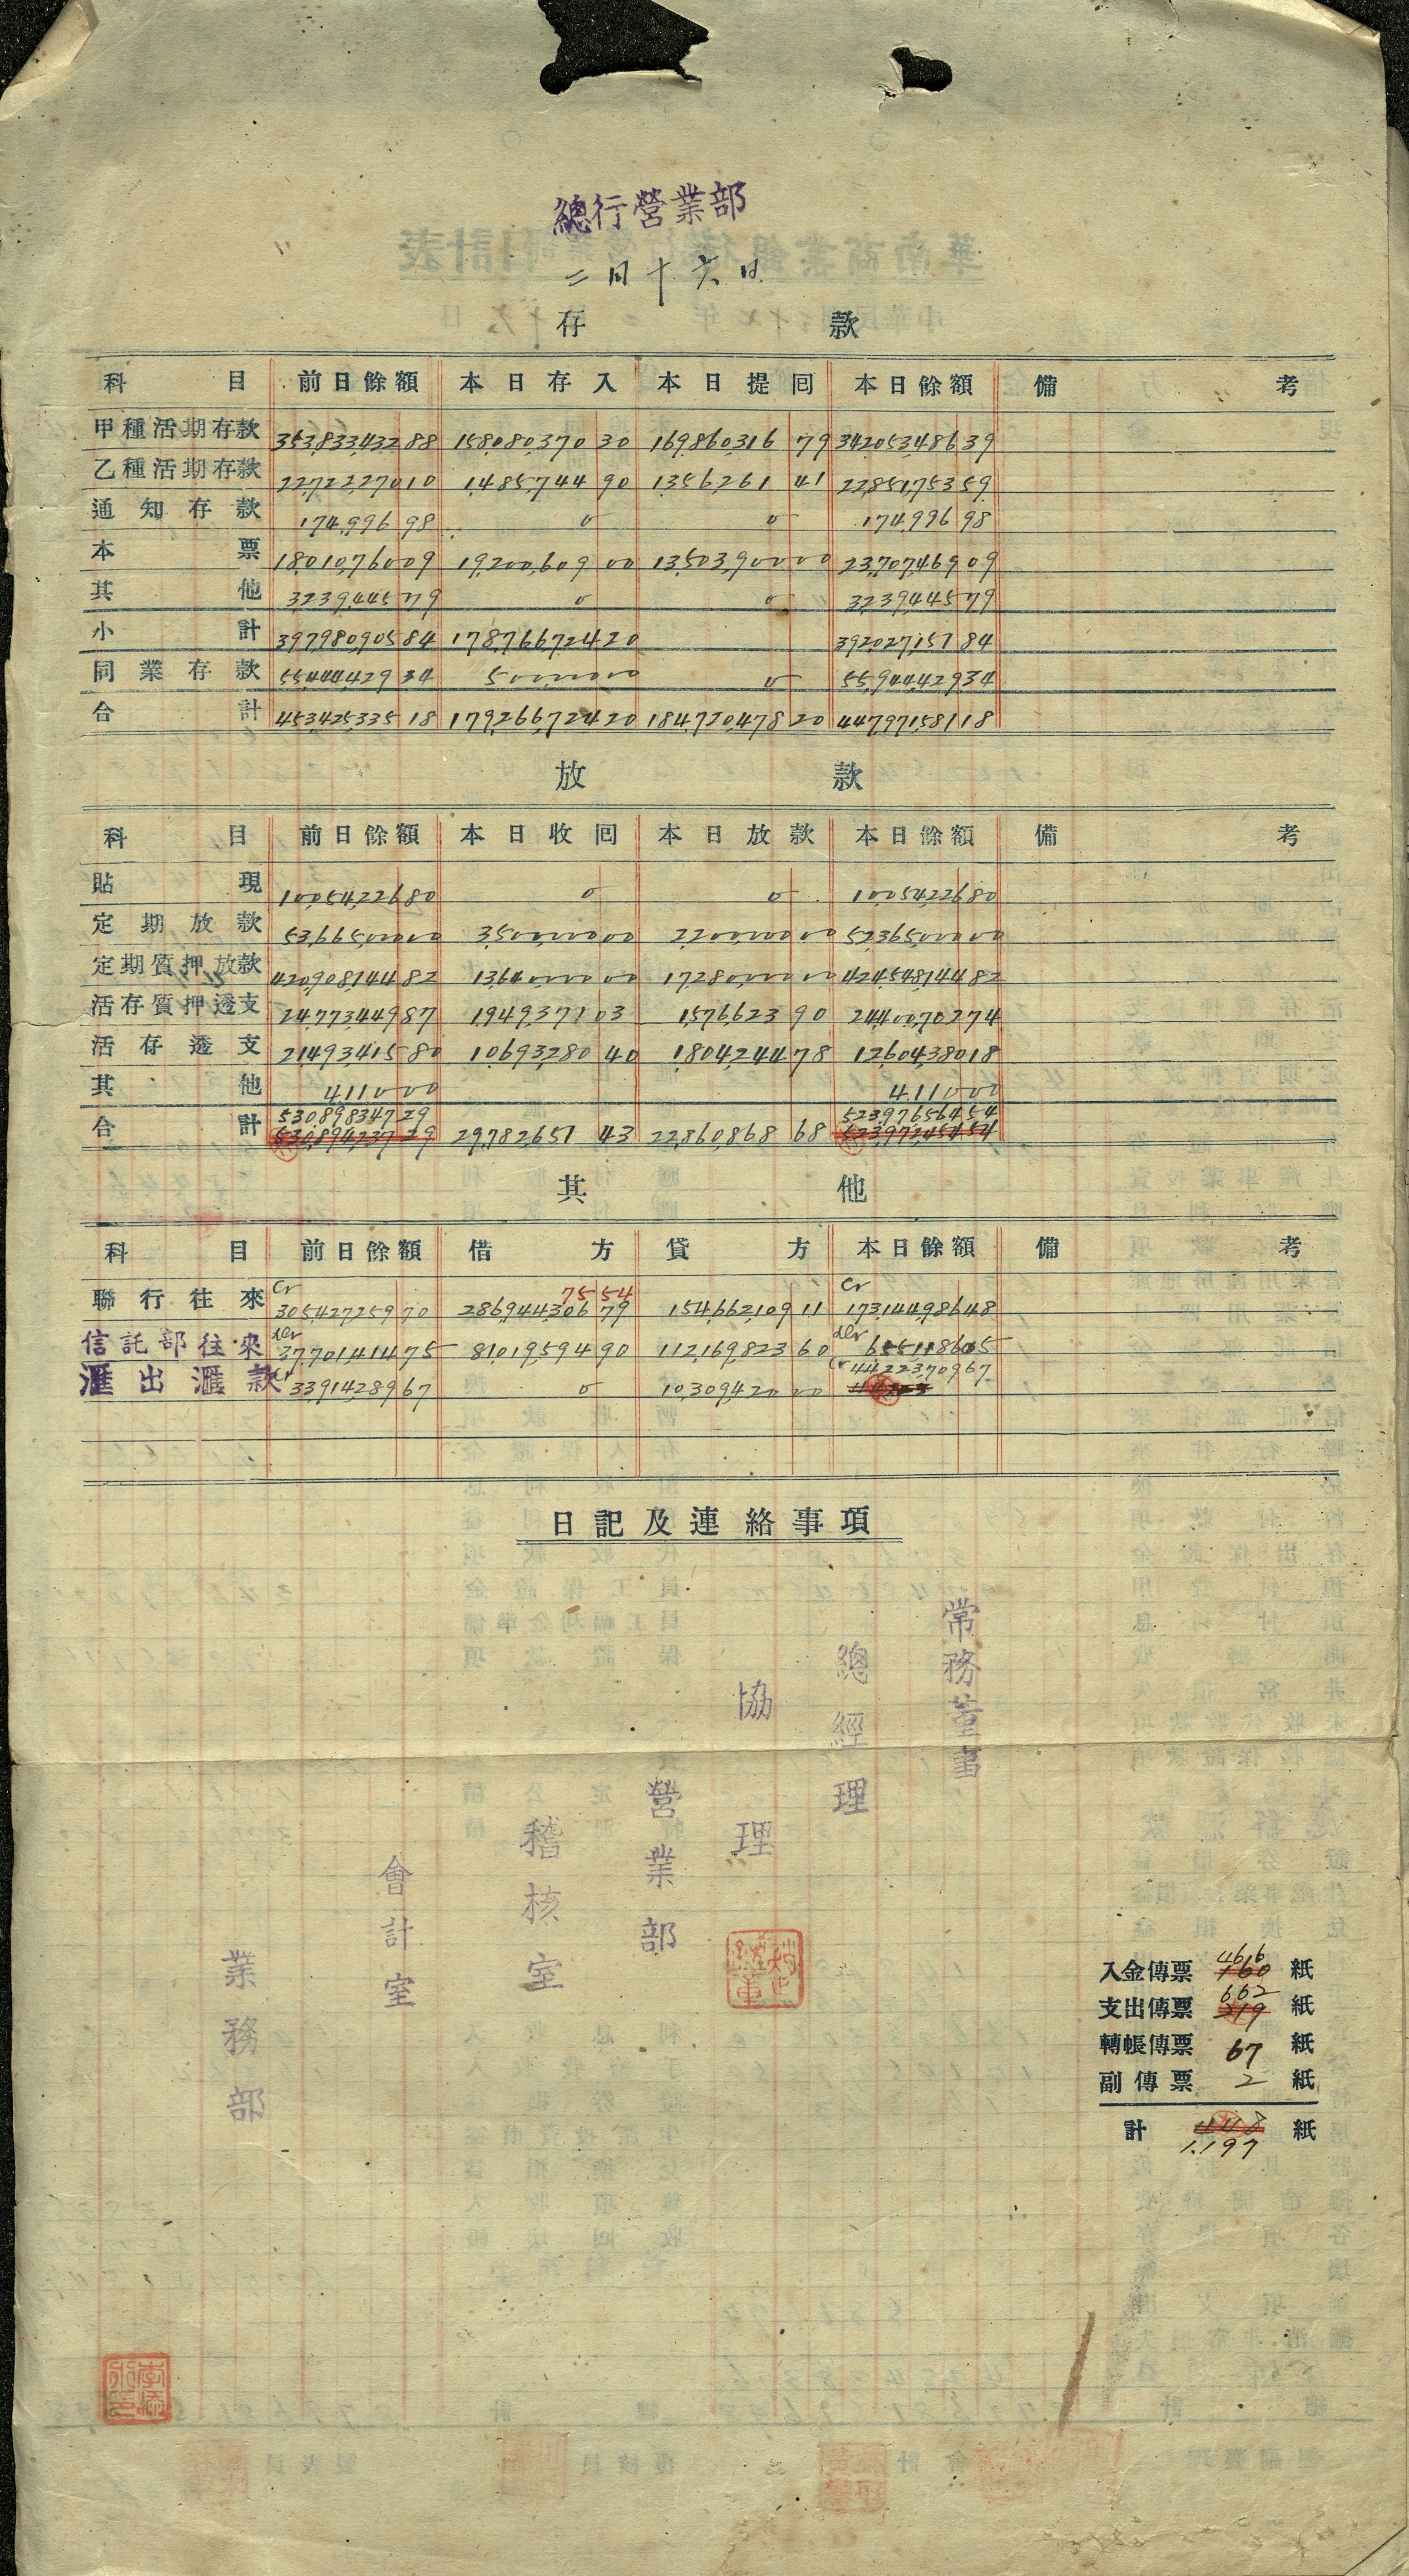 總行營業部
二月十六日
存款
科目 前日餘額 本日存入 本日提囘 本日餘額 備考
甲種活期存款 353,833,432 88 158,080,370 30 169,860,316 79 342,053,486 39
乙種活期存款 22,722,270 10 1,485,744 90 1,356,261 41 22,851,753 59
通知存款 174,996 98 0 0 174,996 98
本票 18,010,760 09 19,200,609 00 13,503,900 00 23,707,469 09
其他 3,239,445 79 0 0 3,239,445 79
小計 397,980,905 84 178,766,724 20 392,027,151 84
同業存款 55,444,429 34 500,000 00 0 55,944,429 34
合計 453,425,335 18 179,266,724 20 184,720,478 20 447,971,581 18
放款
科目 前日餘額 本日收囘 本日放款 本日餘額 備考
貼現 10,054,226 80 0 0 10,054,226 80
定期放款 53,665,000 00 3,500,000 00 2,200,000 00 52,365,000 00
定期質押放款 420,908,144 82 13,640,000 00 17,280,000 00 424,548,144 82
活存質押透支 24,773,449 87 1,949,371 03 1,576,623 90 24,400,702 74
活存透支 21,493,415 80 10,693,280 40 1,804,244 78 12,604,380 18
其他 4,110 00 4,110 00
530,898,347 29 523,976,564 54
合計 530,894,237 29 29,782,651 43 22,860,868 68 523,972,454 54
其他
科目 前日餘額 借方 貸方 本日餘額 備考
Cr 75 54 Cr
聯行往來 305,427,259 70 286,944,306 79 154,662,109 11 173,144,986 48
dr dr
信託部往來 37,701,414 75 81,019,594 90 112,169,823 60 6,551,186 05
Cr Cr 44,223,709 67
滙出滙款 33,914,289 67 0 10,309,420 00
日記及連絡事項
常務董事
總經理
協理
營業部
稽核室
會計室
業務部
466
入金傳票 160 紙
662
支出傳票 219 紙
轉帳傳票 67 紙
副傳票 2 紙
計 448 紙
1.197